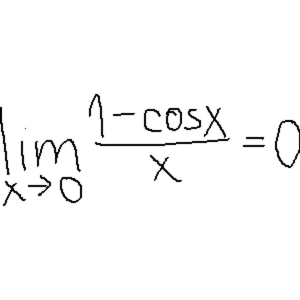 lim x→0 (1-cosx)/x = 0